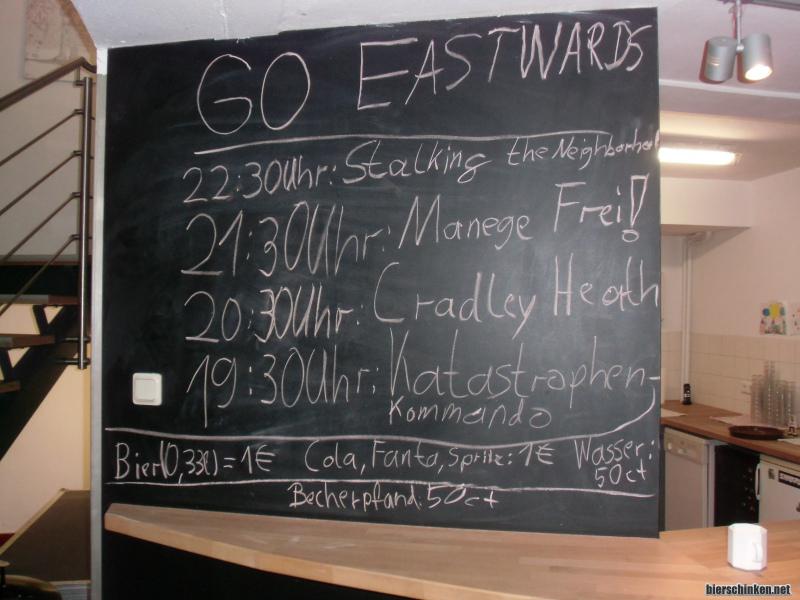 GO EASTWARDS
22:30Uhr: Stalking the Neighborhood
21:30Uhr: Manege Frei!
20:30Uhr: Cradley Heath
19:30Uhr: Katastrophen-
Kommando
Bier(0,33l) = 1€ Cola, Fanta, Spritz: 1€ Wasser:
50ct
Becherpfand: 50ct
bierschinken.net